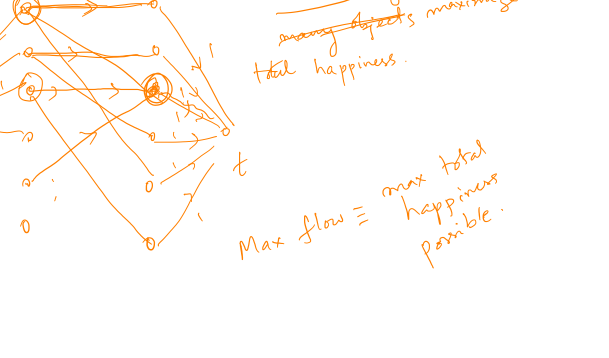 objects maximize
total happiness.
1
1
1
1
1
1
1
t
Max flow ≡ max total
happiness
possible.